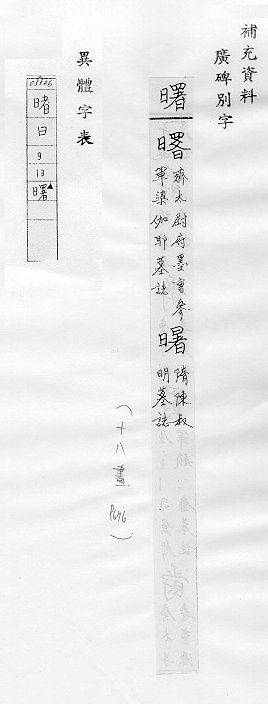 補充資料
廣碑別字
曙
齊太尉府墨曹參
軍梁伽耶墓誌
曙
隋陳叔
明墓誌
(十八畫 P646)
異體字表
曙
日
9
13
曙▲